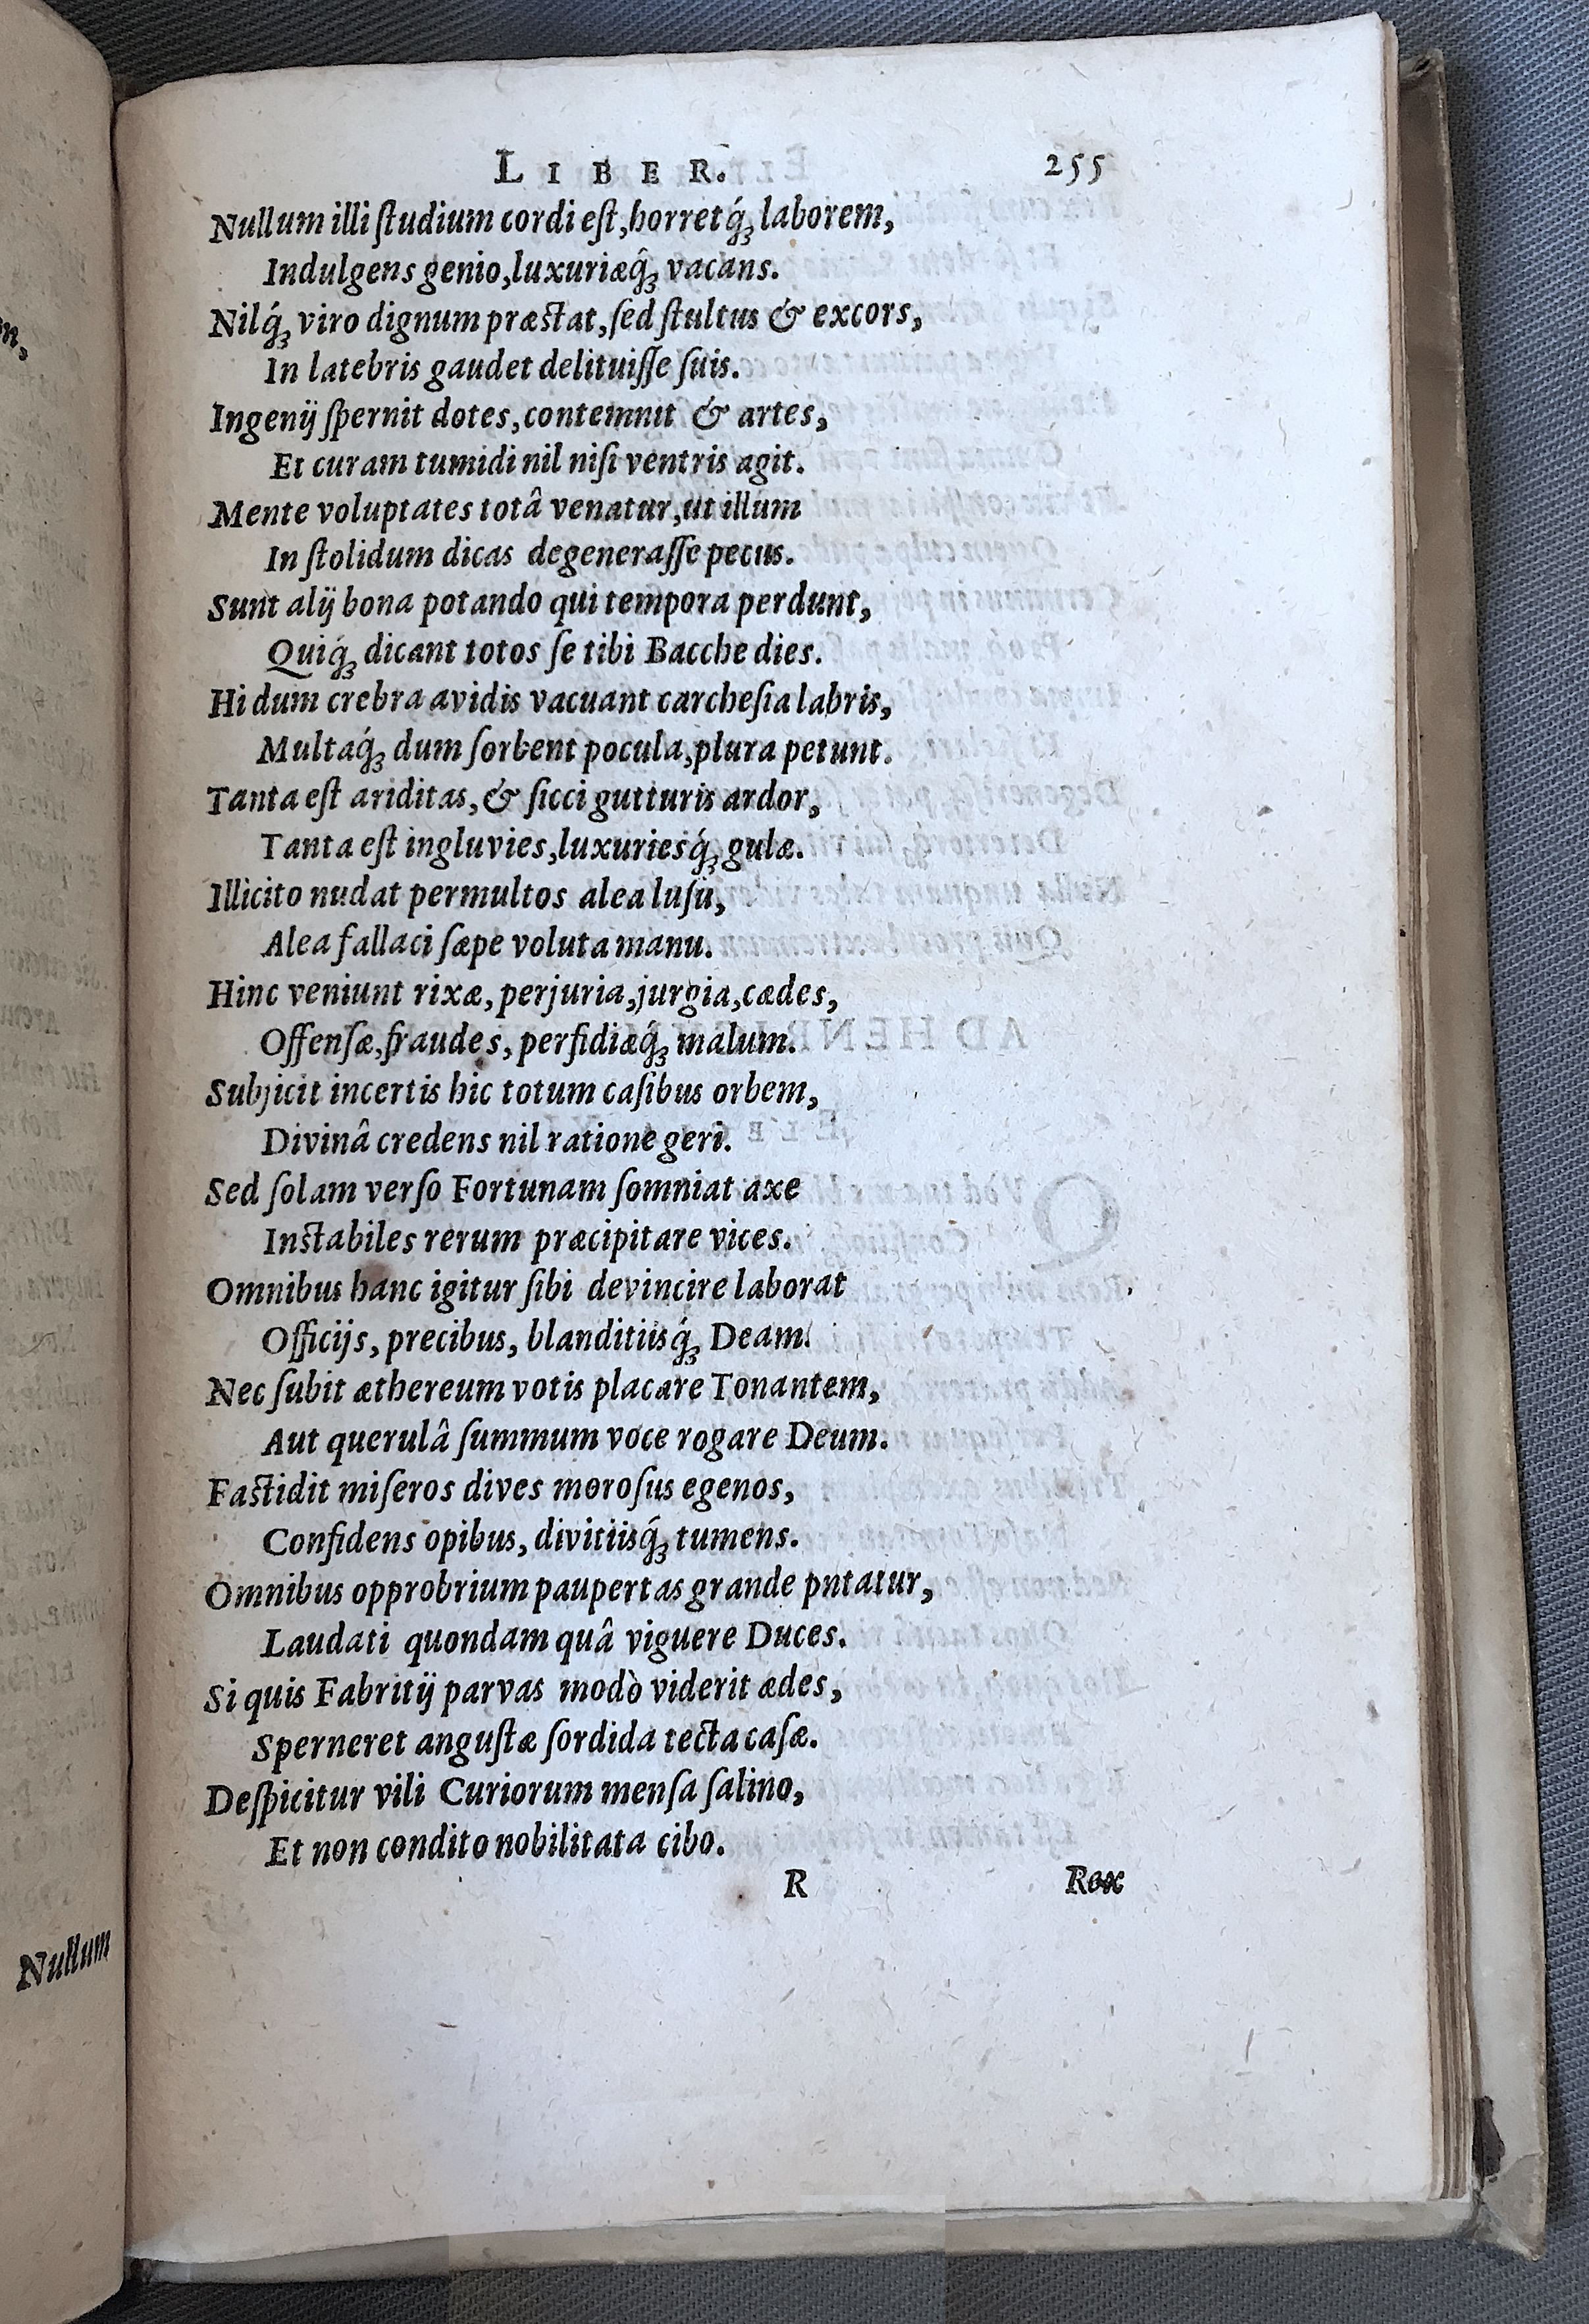 LIBER. 255
Nullum illi ſtudium cordi eſt, horretq́ꝫ laborem,
Indulgens genio, luxuriæq̂ꝫ vacans.
Nilq́ꝫ viro dignum præſtat, ſed ſtultus & excors,
In latebris gaudet delituiſſe ſuis.
Ingenij ſpernit dotes, contemnit & artes,
Et curam tumidi nil niſi ventris agit.
Mente voluptates totâ venatur, ut illum
In ſtolidum dicas degeneraſſe pecus.
Sunt alij bona potando qui tempora perdunt,
Quiq́ꝫ dicant totos ſe tibi Bacche dies.
Hi dum crebra avidis vacuant carcheſia labris,
Multaq́ꝫ dum ſorbent pocula, plura petunt.
Tanta eſt ariditas, & ſicci gutturis ardor,
Tanta eſt ingluvies, luxuriesq́ꝫ gulæ.
Illicito nudat permultos alea luſu,
Alea fallaci ſæpe voluta manu.
Hinc veniunt rixæ, perjuria, jurgia, cædes,
Offenſæ, fraudes, perfidiæq́ꝫ malum.
Subjicit incertis hic totum caſibus orbem,
Divinâ credens nil ratione geri.
Sed ſolam verſo Fortunam ſomniat axe
Inſtabiles rerum præcipitare vices.
Omnibus hanc igitur ſibi devincire laborat
Officijs, precibus, blanditiisq́ꝫ Deam.
Nec ſubit æthereum votis placare Tonantem,
Aut querulâ ſummum voce rogare Deum.
Faſtidit miſeros dives moroſus egenos,
Confidens opibus, divitiisq́ꝫ tumens.
Omnibus opprobrium paupertas grande pntatur,
Laudati quondam quâ viguere Duces.
Si quis Fabritij parvas modò viderit ædes,
Sperneret anguſtæ ſordida tecta caſæ.
Deſpicitur vili Curiorum menſa ſalino,
Et non condito nobilitata cibo.
R Rex
Nullum